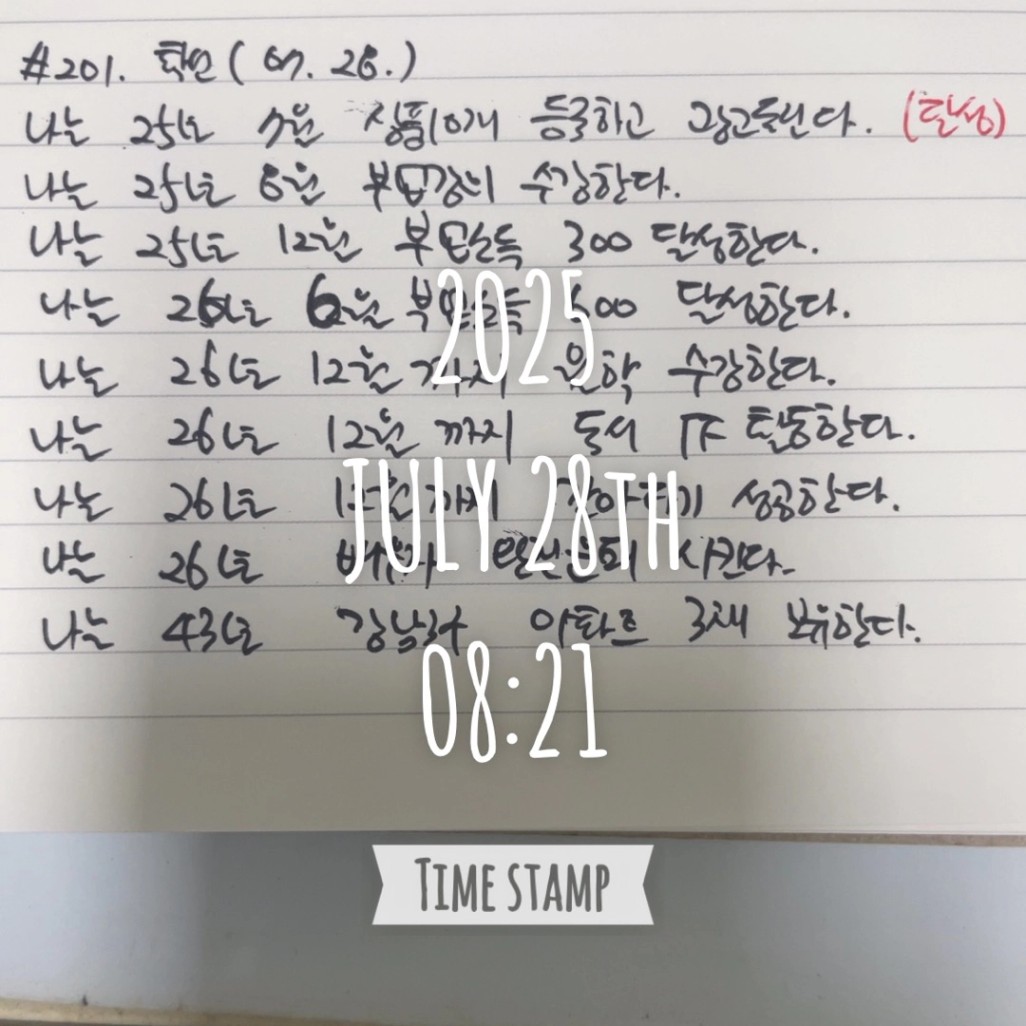 #201. 확언 ( 07. 28. )
나는 25년 7월 상품10개 등록하고 광고돌린다. (달성)
나는 25년 8월 부업강의 수강한다.
나는 25년 12월 부업소득 300 달성한다.
나는 26년 6월 부업소득 500 달성한다.
2025
나는 26년 12월 까지 수강한다.
나는 26년 12월 까지 독서 TF 활동한다.
나는 26년 까지 성공한다.
JULY 28TH
나는 26년 배우자 시킨다.
나는 43년 강남3구 아파트 3채 보유한다.
08:21
TIME STAMP